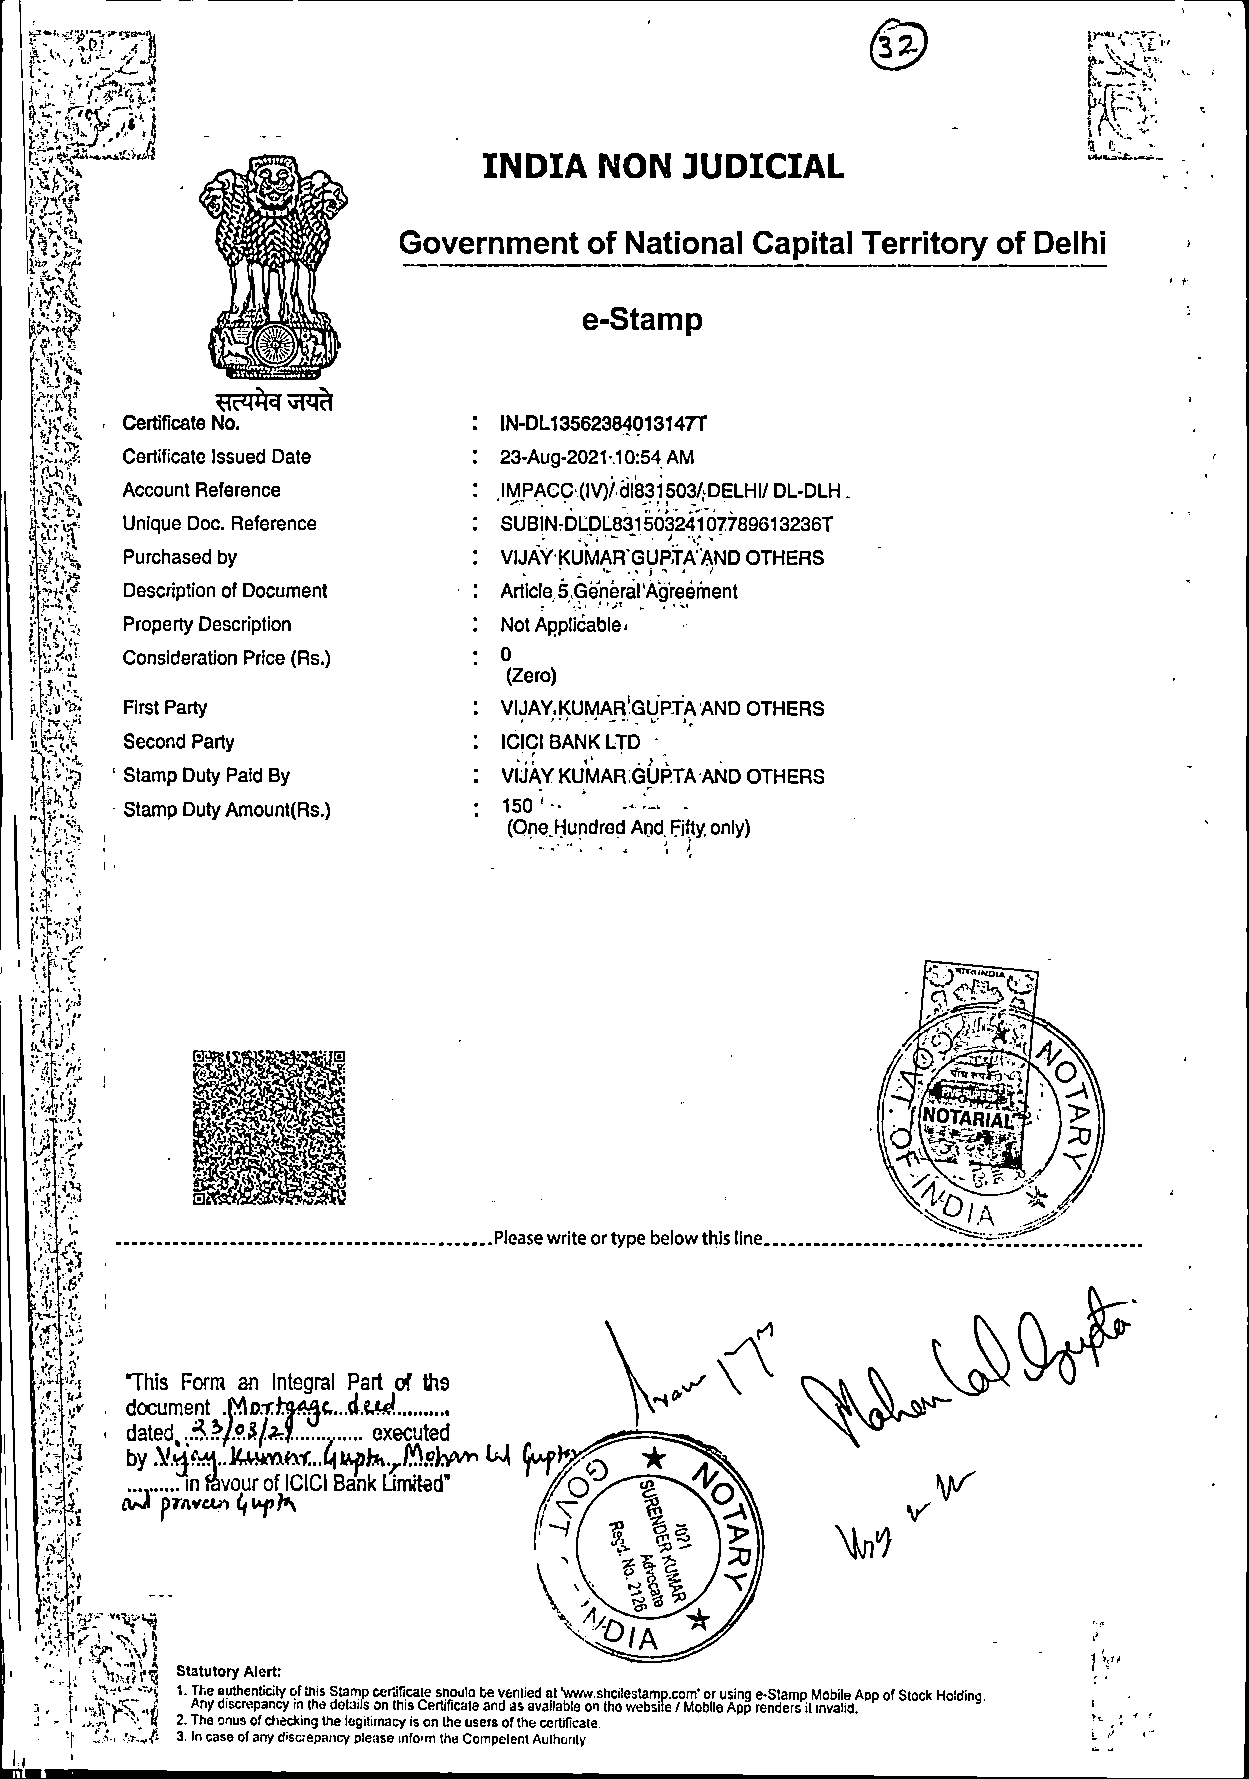 32
INDIA NON JUDICIAL
Government of National Capital Territory of Delhi
e-Stamp
सत्यमेव जयते
Certificate No. : IN-DL13562384013147T
Certificate Issued Date : 23-Aug-2021 10:54 AM
Account Reference : IMPACC (IV)/ dl831503/ DELHI/ DL-DLH
Unique Doc. Reference : SUBIN-DLDL83150324107789613236T
Purchased by : VIJAY KUMAR GUPTA AND OTHERS
Description of Document : Article 5 General Agreement
Property Description : Not Applicable
Consideration Price (Rs.) : 0
(Zero)
First Party : VIJAY KUMAR GUPTA AND OTHERS
Second Party : ICICI BANK LTD
Stamp Duty Paid By : VIJAY KUMAR GUPTA AND OTHERS
Stamp Duty Amount(Rs.) : 150
(One Hundred And Fifty only)
INDIA
GOVT. OF INDIA NOTARY
NOTARIAL
Please write or type below this line
Mohan Lal Gupta
"This Form an Integral Part of the
document Mortgage deed
dated 23/08/21 executed
by Vijay Kumar Gupta, Mohan Lal Gupta
in favour of ICICI Bank Limited"
and praveen Gupta
GOVT INDIA NOTARY
SURENDER KUMAR
Advocate
Regd. No. 2126
Statutory Alert:
1. The authenticity of this Stamp certificate should be verified at 'www.shcilestamp.com' or using e-Stamp Mobile App of Stock Holding.
Any discrepancy in the details on this Certificate and as available on the website / Mobile App renders it invalid.
2. The onus of checking the legitimacy is on the users of the certificate.
3. In case of any discrepancy please inform the Competent Authority